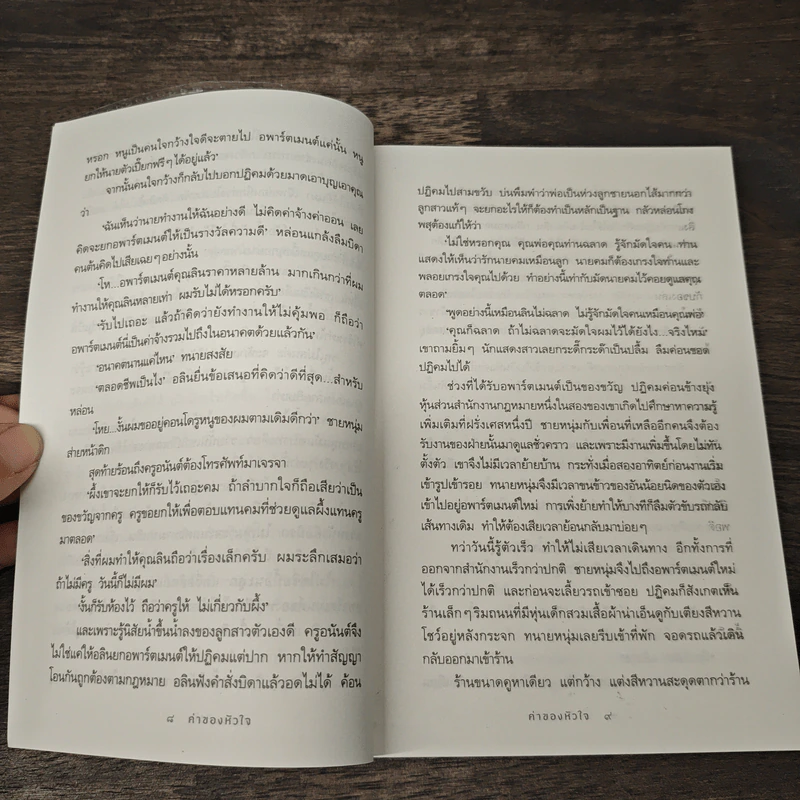 หรอก หนูเป็นคนใจกว้างใจดีจะตายไป อพาร์ตเมนต์แค่นั้น หนู
ยกให้นายตัวเปี๊ยกฟรีๆ ได้อยู่แล้ว'
จากนั้นคนใจกว้างก็กลับไปบอกปฏิคมด้วยมาดเอาบุญเอาคุณ
ว่า
'ฉันเห็นว่านายทำงานให้ฉันอย่างดี ไม่คิดค่าจ้างค่าออน เลย
คิดจะยกอพาร์ตเมนต์ให้เป็นรางวัลความดี' หล่อนแกล้งลืมบิดา
คนต้นคิดไปเสียเฉยๆ อย่างนั้น
'โห...อพาร์ตเมนต์คุณลินราคาหลายล้าน มากเกินกว่าที่ผม
ทำงานให้คุณลินหลายเท่า ผมรับไม่ได้หรอกครับ'
'รับไปเถอะ แล้วถ้าคิดว่ายังทำงานให้ไม่คุ้มพอ ก็ถือว่า
อพาร์ตเมนต์นี้เป็นค่าจ้างรวมไปถึงในอนาคตด้วยแล้วกัน'
'อนาคตนานแค่ไหน' ทนายสงสัย
'ตลอดชีพเป็นไง' อลินยื่นข้อเสนอที่คิดว่าดีที่สุด...สำหรับ
หล่อน
'โหย...งั้นผมขออยู่คอนโดรูหนูของผมตามเดิมดีกว่า' ชายหนุ่ม
ส่ายหน้าดิก
สุดท้ายร้อนถึงครูอนันต์ต้องโทรศัพท์มาเจรจา
'ผึ้งเขาจะยกให้ก็รับไว้เถอะคม ถ้าลำบากใจก็ถือเสียว่าเป็น
ของขวัญจากครู ครูขอยกให้เพื่อตอบแทนคมที่ช่วยดูแลผึ้งแทนครู
มาตลอด'
'สิ่งที่ผมทำให้คุณลินถือว่าเรื่องเล็กครับ ผมระลึกเสมอว่า
ถ้าไม่มีครู วันนี้ก็ไม่มีผม'
'งั้นก็รับห้องไว้ ถือว่าครูให้ ไม่เกี่ยวกับผึ้ง'
และเพราะรู้นิสัยน้ำขึ้นน้ำลงของลูกสาวตัวเองดี ครูอนันต์จึง
ไม่ใช่แค่ให้อลินยกอพาร์ตเมนต์ให้ปฏิคมแต่ปาก หากให้ทำสัญญา
โอนกันถูกต้องตามกฎหมาย อลินฟังคำสั่งบิดาแล้วอดไม่ได้ ค้อน
๘ ค่าของหัวใจ
ปฏิคมไปสามขวับ บ่นพึมพำว่าพ่อเป็นห่วงลูกชายนอกไส้มากกว่า
ลูกสาวแท้ๆ จะยกอะไรให้ก็ต้องทำเป็นหลักเป็นฐาน กลัวหล่อนโกง
พสุต้องแก้ให้ว่า
'ไม่ใช่หรอกคุณ คุณพ่อคุณท่านฉลาด รู้จักมัดใจคน ท่าน
แสดงให้เห็นว่ารักนายคมเหมือนลูก นายคมก็ต้องเกรงใจท่านและ
พลอยเกรงใจคุณไปด้วย ทำอย่างนี้เท่ากับมัดนายคมไว้คอยดูแลคุณ
ตลอด'
'พูดอย่างนี้เหมือนลินไม่ฉลาด ไม่รู้จักมัดใจคนเหมือนคุณพ่อ'
'คุณก็ฉลาด ถ้าไม่ฉลาดจะมัดใจผมไว้ได้ยังไง...จริงไหม'
เขาถามยิ้มๆ นักแสดงสาวเลยกระดี๊กระด๊าเป็นปลื้ม ลืมค่อนขอด
ปฏิคมไปได้
ช่วงที่ได้รับอพาร์ตเมนต์เป็นของขวัญ ปฏิคมค่อนข้างยุ่ง
หุ้นส่วนสำนักงานกฎหมายหนึ่งในสองของเขาเกิดไปศึกษาหาความรู้
เพิ่มเติมที่ฝรั่งเศสหนึ่งปี ชายหนุ่มกับเพื่อนที่เหลืออีกคนจึงต้อง
รับงานของฝ่ายนั้นมาดูแลชั่วคราว และเพราะมีงานเพิ่มขึ้นโดยไม่ทัน
ตั้งตัว เขาจึงไม่มีเวลาย้ายบ้าน กระทั่งเมื่อสองอาทิตย์ก่อนงานเริ่ม
เข้ารูปเข้ารอย ทนายหนุ่มจึงมีเวลาขนข้าวของอันน้อยนิดของตัวเอง
เข้าไปอยู่อพาร์ตเมนต์ใหม่ การเพิ่งย้ายทำให้บางทีก็ลืมตัวขับรถกลับ
เส้นทางเดิม ทำให้ต้องเสียเวลาย้อนกลับมาบ่อยๆ
ทว่าวันนี้รู้ตัวเร็ว ทำให้ไม่เสียเวลาเดินทาง อีกทั้งการที่
ออกจากสำนักงานเร็วกว่าปกติ ชายหนุ่มจึงไปถึงอพาร์ตเมนต์ใหม่
ได้เร็วกว่าปกติ และก่อนจะเลี้ยวรถเข้าซอย ปฏิคมก็สังเกตเห็น
ร้านเล็กๆ ริมถนนที่มีหุ่นเด็กสวมเสื้อผ้าน่าเอ็นดูกับเตียงสีหวาน
โชว์อยู่หลังกระจก ทนายหนุ่มเลยรีบเข้าที่พัก จอดรถแล้วเดิน
กลับออกมาเข้าร้าน
ร้านขนาดคูหาเดียว แต่กว้าง แต่งสีหวานสะดุดตากว่าร้าน
ค่าของหัวใจ ๙